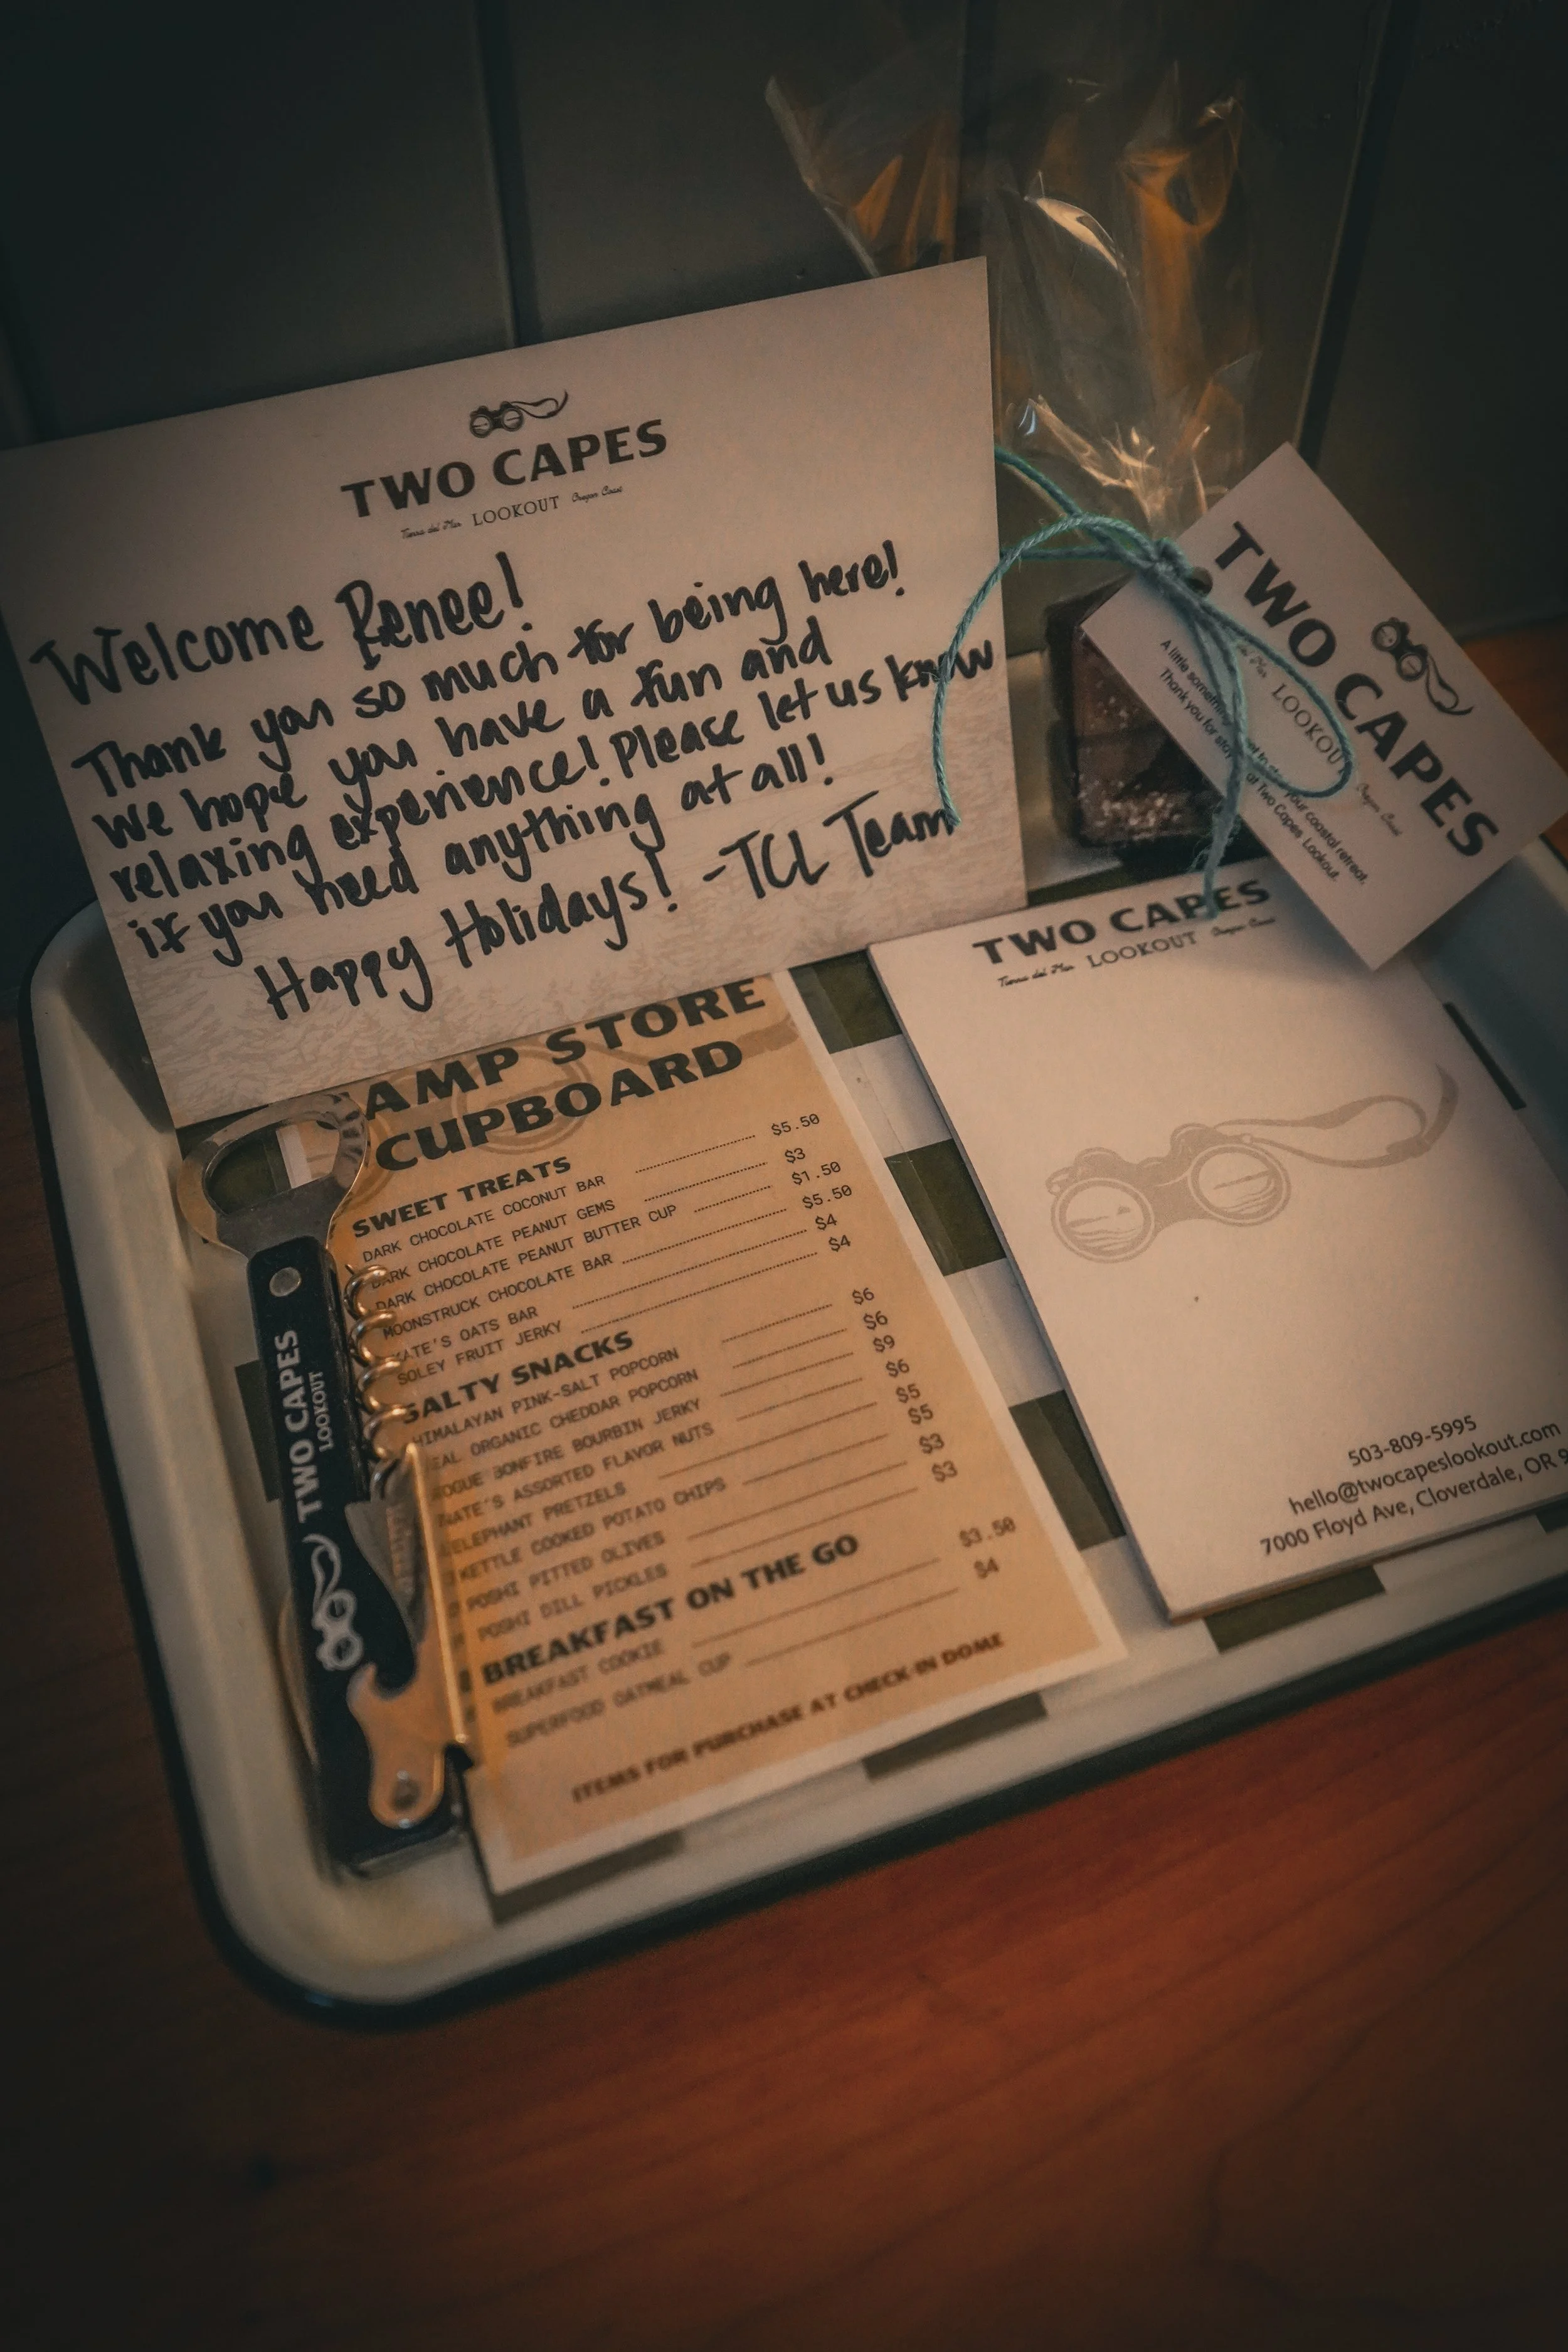 TWO CAPES
Tierra del Mar LOOKOUT Oregon Coast
Welcome Renee!
Thank you so much for being here!
We hope you have a fun and
relaxing experience! Please let us know
if you need anything at all!
Happy Holidays! -TCL Team
TWO CAPES
LOOKOUT Oregon Coast
A little something your coastal retreat.
Thank you for at Two Capes Lookout.
AMP STORE
CUPBOARD
SWEET TREATS
DARK CHOCOLATE COCONUT BAR $5.50
DARK CHOCOLATE PEANUT GEMS $3
DARK CHOCOLATE PEANUT BUTTER CUP $1.50
MOONSTRUCK CHOCOLATE BAR $5.50
KATE'S OATS BAR $4
SOLEY FRUIT JERKY $4
SALTY SNACKS
HIMALAYAN PINK-SALT POPCORN $6
EAL ORGANIC CHEDDAR POPCORN $6
ROGUE BONFIRE BOURBIN JERKY $9
NATE'S ASSORTED FLAVOR NUTS $6
ELEPHANT PRETZELS $5
KETTLE COOKED POTATO CHIPS $5
POSHI PITTED OLIVES $3
POSHI DILL PICKLES $3
BREAKFAST ON THE GO
BREAKFAST COOKIE $3.50
SUPERFOOD OATMEAL CUP $4
ITEMS FOR PURCHASE AT CHECK-IN DOME
TWO CAPES
LOOKOUT
TWO CAPES
Tierra del Mar LOOKOUT Oregon Coast
503-809-5995
hello@twocapeslookout.com
7000 Floyd Ave, Cloverdale, OR 9